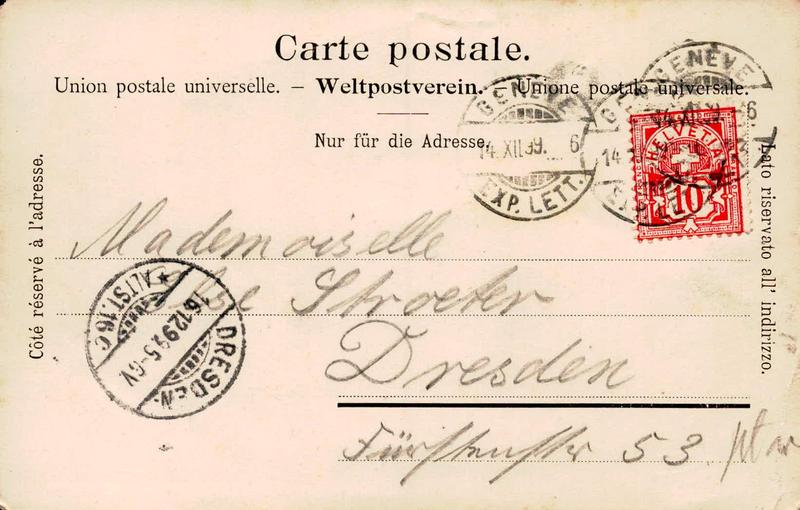 Carte postale.
Union postale universelle. – Weltpostverein. – Unione postale universale.
Nur für die Adresse.
Côté réservé à l'adresse.
Lato riservato all' indirizzo.
GENÈVE
14.XII.99. 6
EXP. LETT.
GENÈVE
14.XII.99. 6
HELVETIA
10
Mademoiselle
Else Stroeter
Dresden
Fürstenstr 53.
ALTST. 16 c
16.12.99. 5-6V
DRESDEN